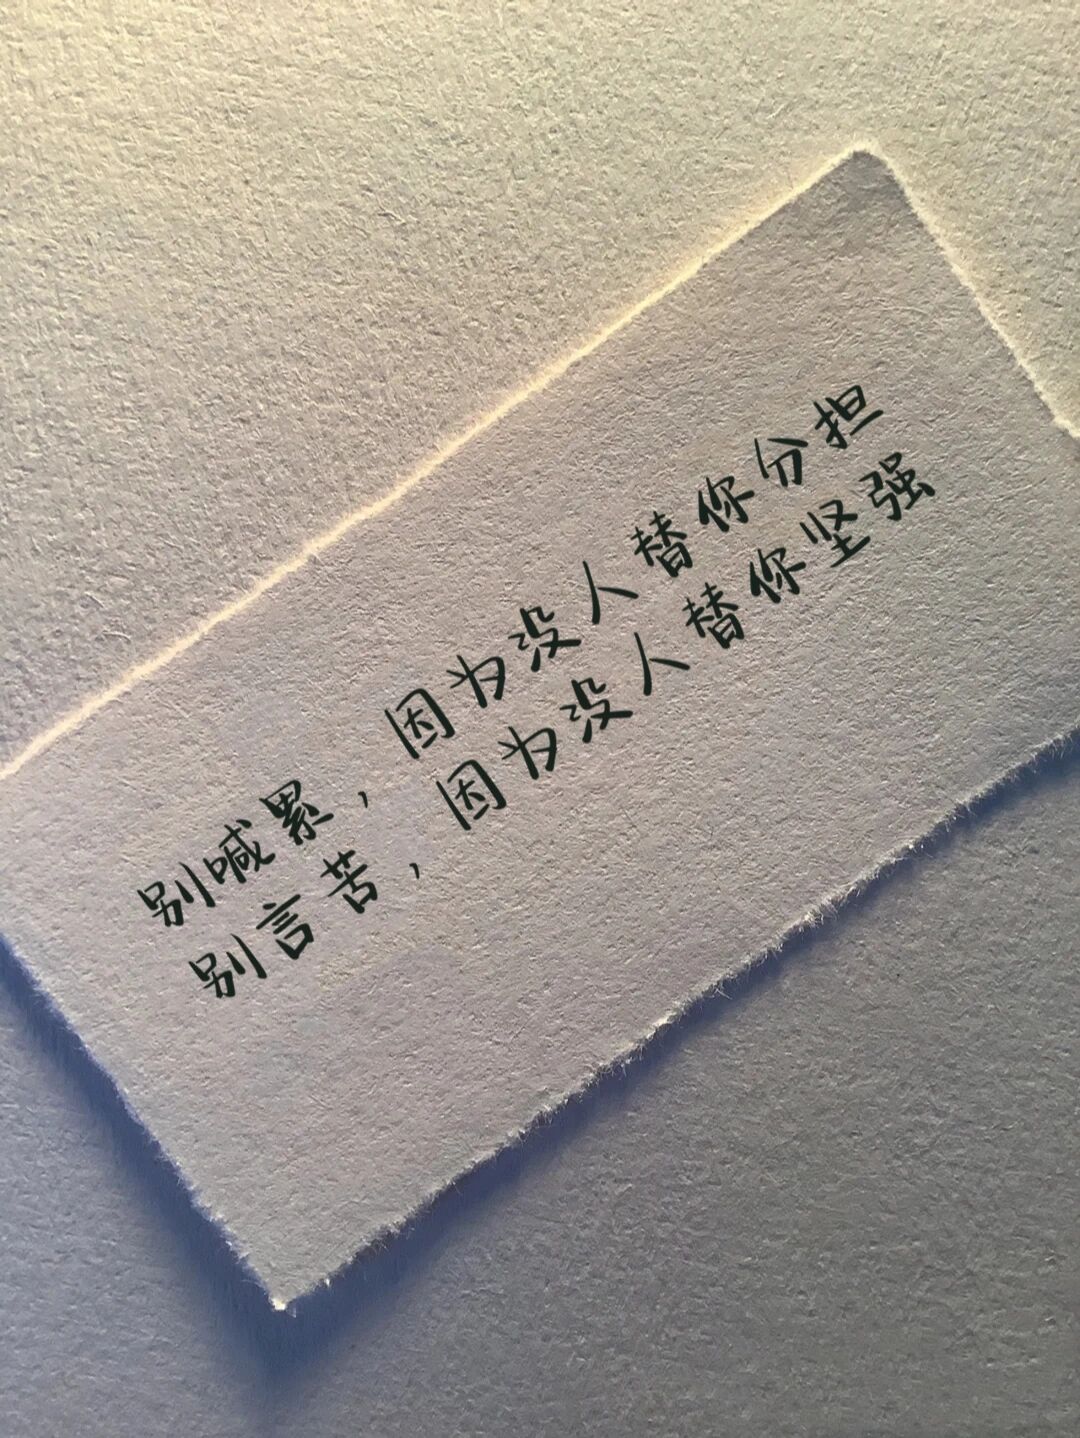 别喊累，因为没人替你分担
别言苦，因为没人替你坚强